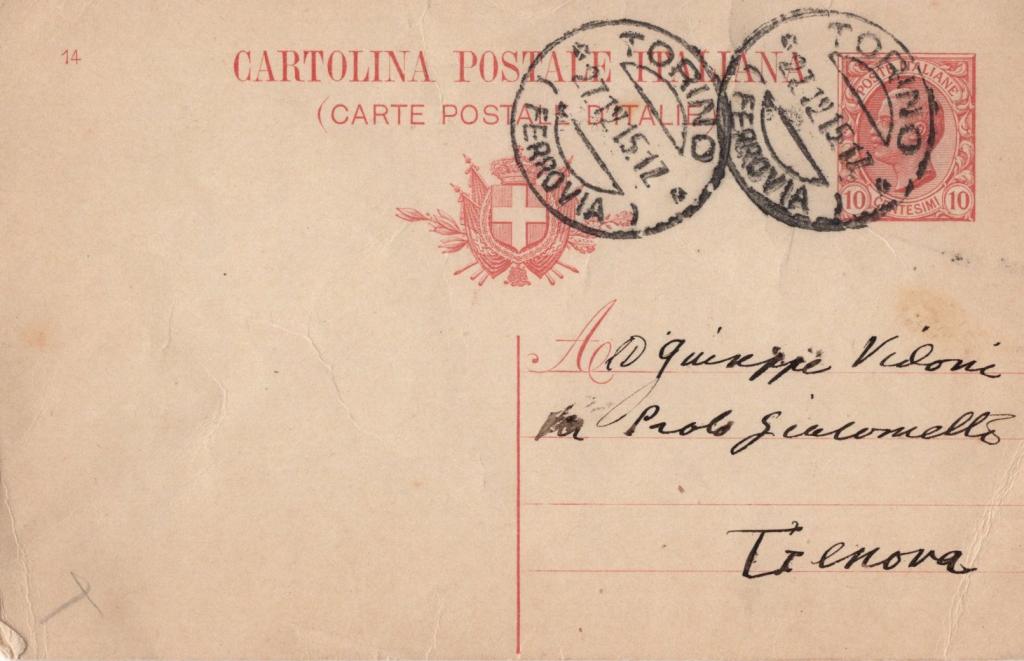 14
CARTOLINA POSTALE ITALIANA
(CARTE POSTALE D'ITALIE)
TORINO
27.12 15.17
(FERROVIA)
TORINO
27.12 15.17
(FERROVIA)
POSTE ITALIANE
10 CENTESIMI 10
A D Giuseppe Vidoni
Paolo Giacometti
Genova